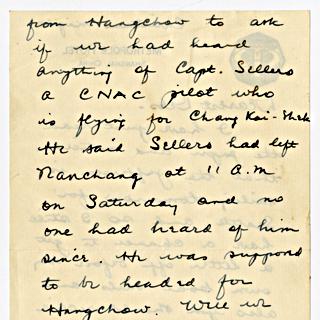 from Hangchow to ask
if we had heard
anything of Capt. Sellers
a CNAC pilot who
is flying for Chang Kai-Shek
He said Sellers had left
Nanchang at 11 A.M
on Saturday and no
one had heard of him
since. He was supposed
to be headed for
Hangchow. Well we